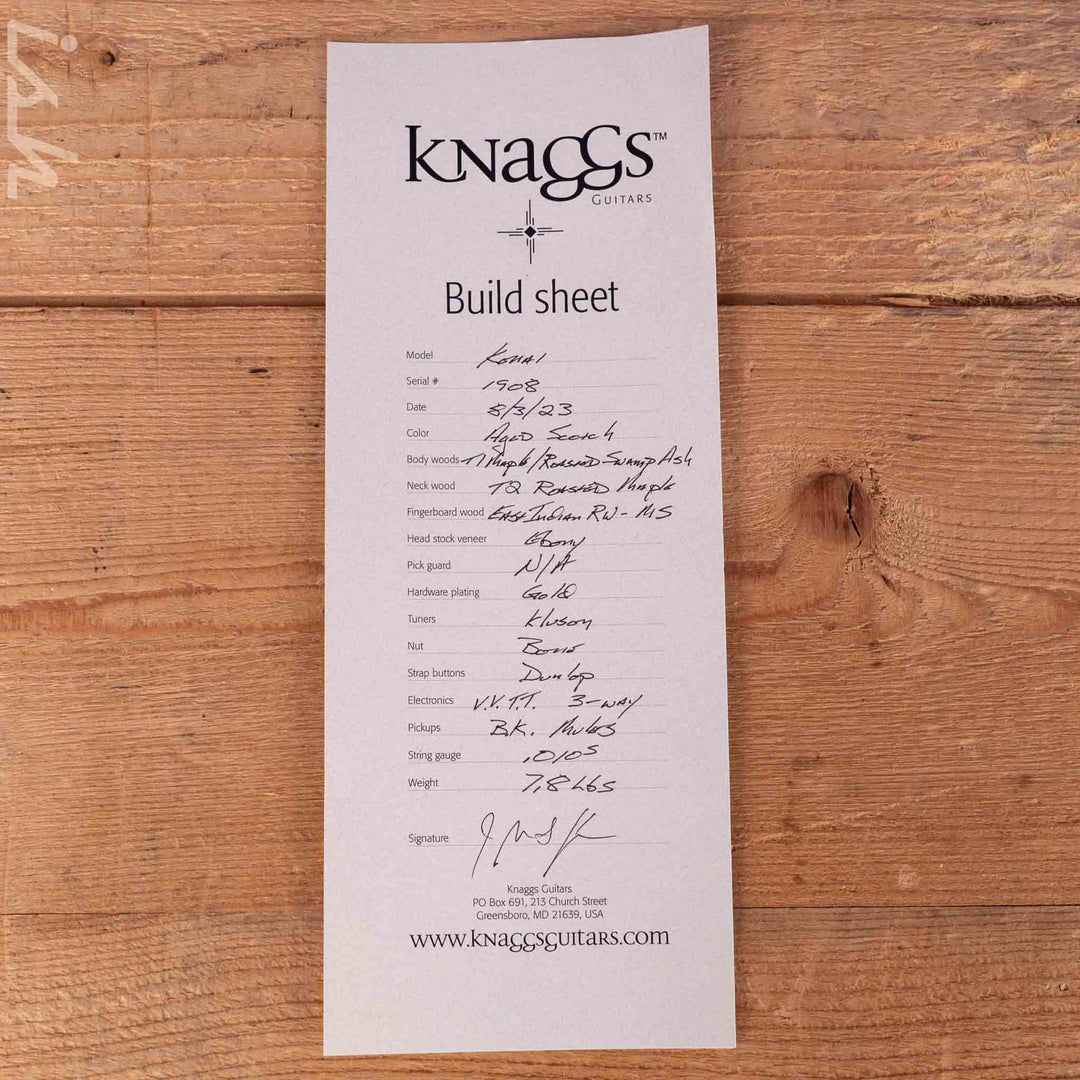 ish
KNAGGS™
GUITARS
Build sheet
Model Kenai
Serial # 1908
Date 8/3/23
Color Aged Scotch
Body woods T1 Maple/Roasted Swamp Ash
Neck wood T2 Roasted Maple
Fingerboard wood East Indian RW - MS
Head stock veneer Ebony
Pick guard N/A
Hardware plating Gold
Tuners Kluson
Nut Bone
Strap buttons Dunlop
Electronics V.V.T.T. 3-way
Pickups B.K. Mules
String gauge .010s
Weight 7.8 Lbs
Signature
Knaggs Guitars
PO Box 691, 213 Church Street
Greensboro, MD 21639, USA
www.knaggsguitars.com